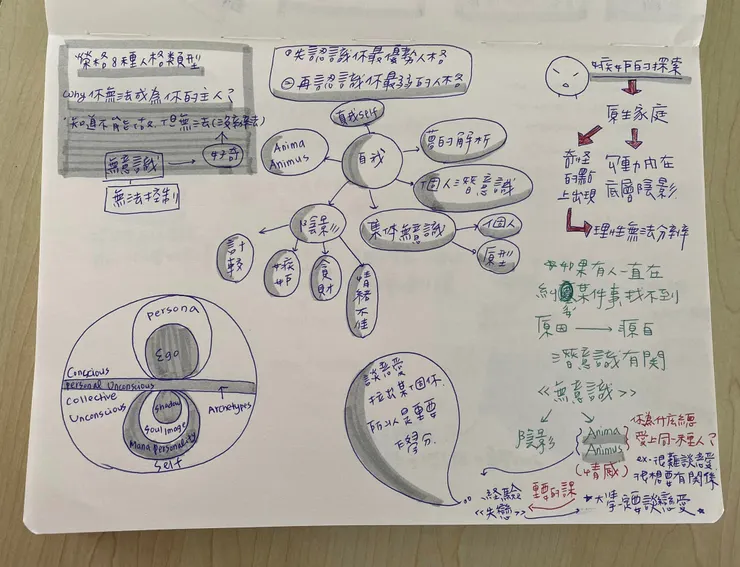 榮格8種人格類型
Why 你無法成為你的主人?
無意識
好奇
無法控制
①先認識你最優勢人格
②再認識你最弱的人格
真我self
Anima
Animus
自我
夢的解析
個人潛意識
陰影
集体無意識
個人
原型
計較
嫉妒
貪財
情緒不佳
嫉妒的探索
原生家庭
奇怪
的點
上出現
勾動內在
底層陰影
理性無法分辨
如果有人一直在
某件事找不到
原因 → 源自
潛意識有関
《無意識》
陰影
Anima
Animus
你為什么總
愛上同一種人?
ex.很難談恋愛
很想要有関係
大學一定要談恋愛
經驗
重要的課
《失戀》
談恋愛
所以是重要
persona
Ego
Conscious
Personal Unconscious
Collective
Unconscious
Archetypes
shadow
soul image
Mana Personality
Self